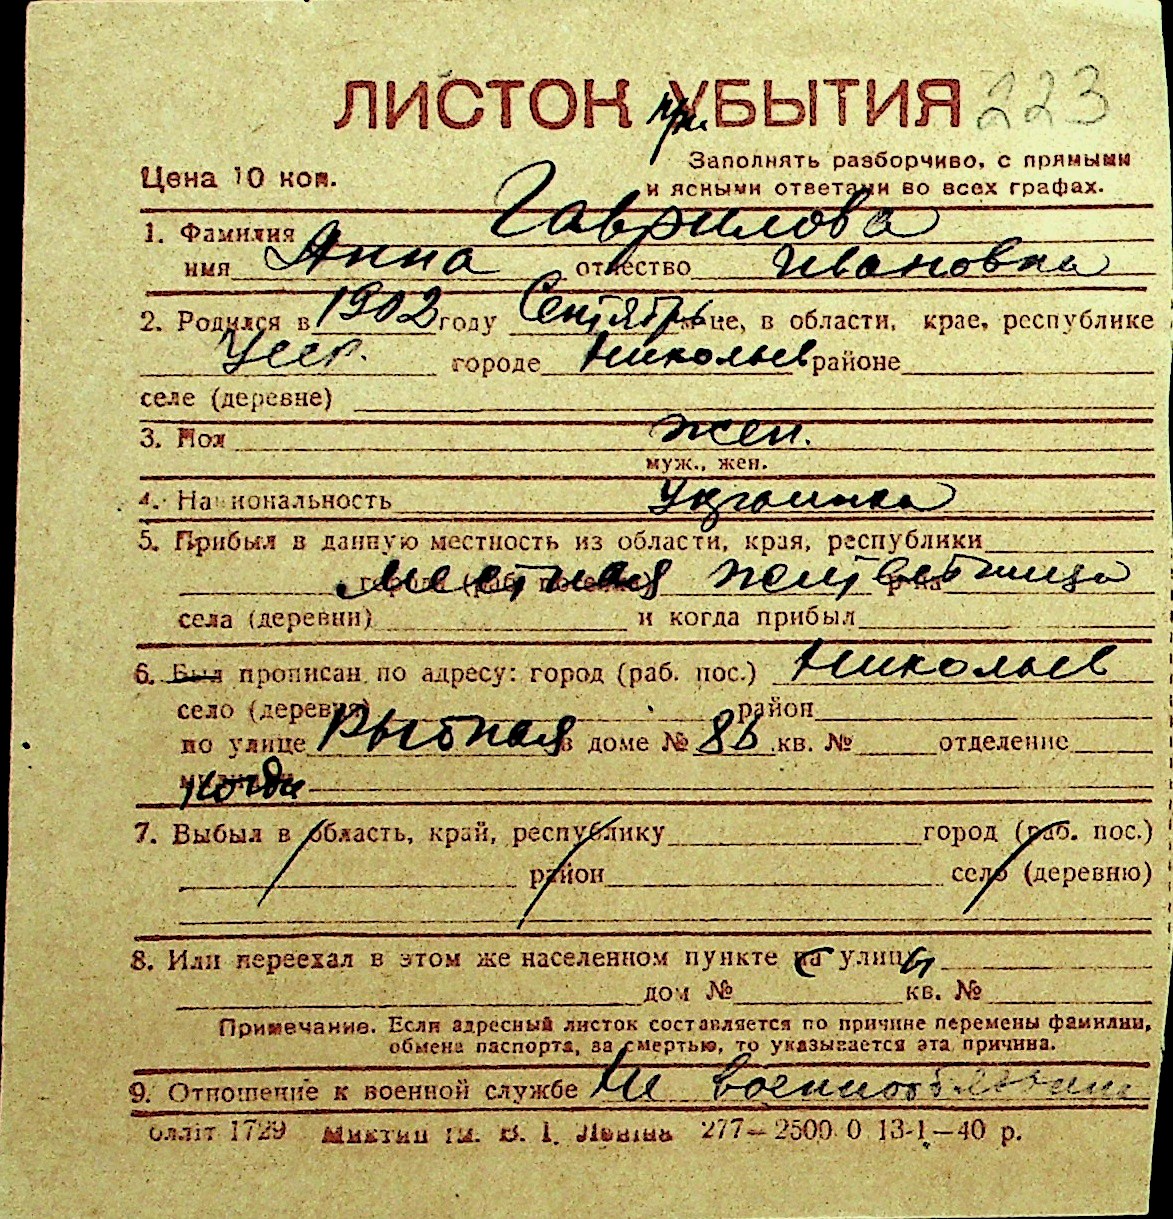 ЛИСТОК УБЫТИЯ 223
при
Заполнять разборчиво, с прямыми
Цена 10 коп. и ясными ответами во всех графах.
1. Фамилия Гаврилова
имя Анна отчество Ивановна
2. Родился в 1902 году Сентябрь м-це, в области, крае, республике
Усср. городе Николаев районе
селе (деревне)
3. Пол жен.
муж., жен.
4. Национальность Украинка
5. Прибыл в данную местность из области, края, республики
города (раб. поселка) местная жительница р-на
села (деревни) и когда прибыл
6. Был прописан по адресу: город (раб. пос.) Николаев
село (деревня) район
по улице Рыбная в доме № 8б кв. № отделение
7. Выбыл в область, край, республику город (раб. пос.)
район село (деревню)
8. Или переехал в этом же населенном пункте с улицы
дом № кв. №
Примечание. Если адресный листок составляется по причине перемены фамилии,
обмена паспорта, за смертью, то указывается эта причина.
9. Отношение к военной службе Не военнообязан
блліт 1729 ім. В. І. Леніна 277—2500 0 13-1—40 р.